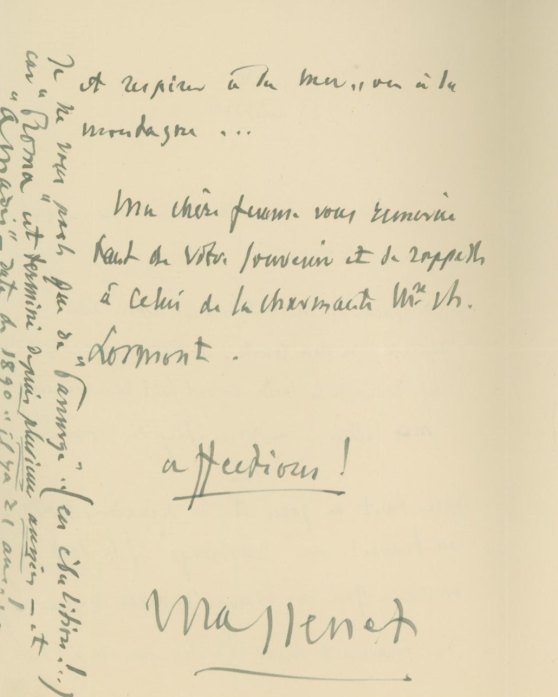 et respirer à la mer, ou à la
montagne ...
Ma chère femme vous remercie
tant de votre souvenir et se rappelle
à celui de la charmante Mme Ch.
Lormont.
affections !
Massenet
Je ne vous parle que de "Panurge".. (en ébulition!...)
car "Roma" est terminé depuis plusieurs années — et
"Amadis" date de 1890 "il y a 21 ans!...